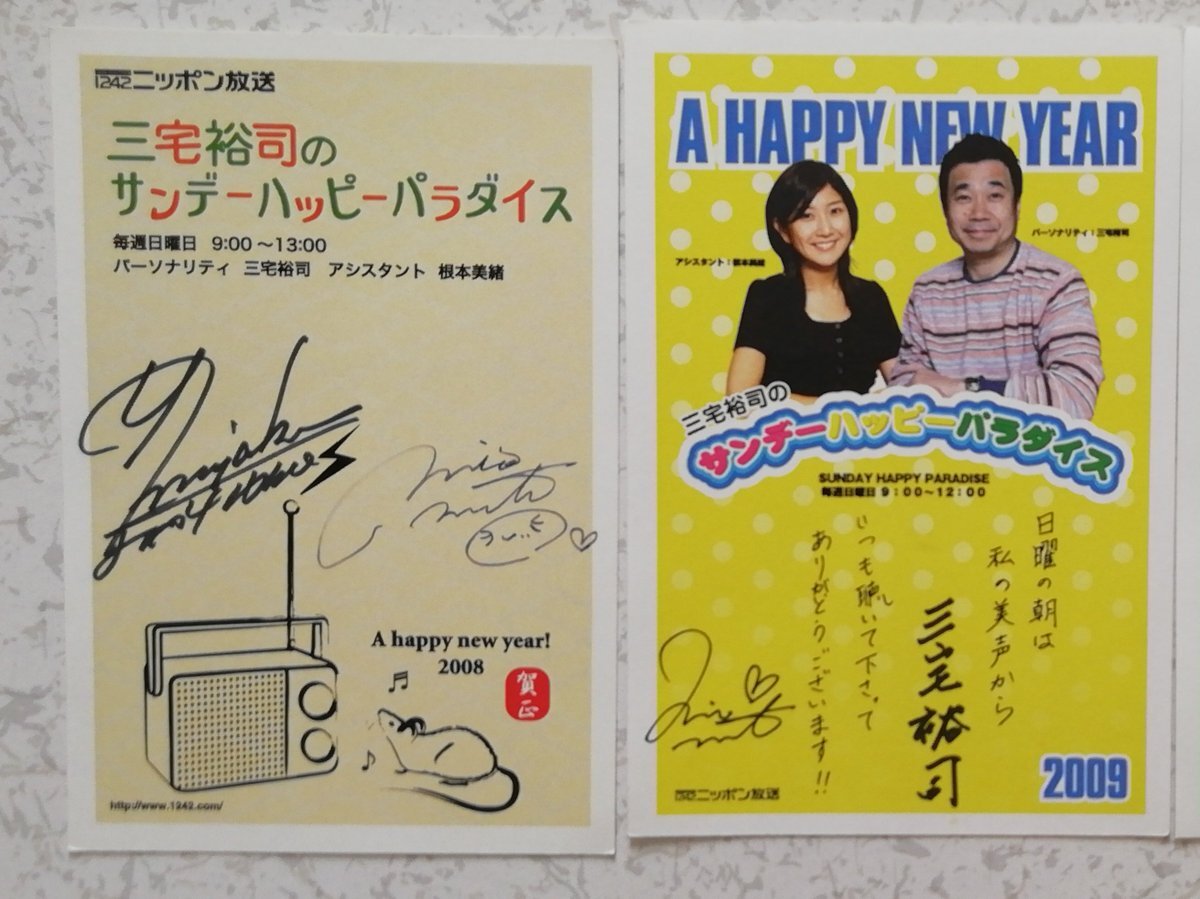 1242ニッポン放送
三宅裕司の
サンデーハッピーパラダイス
毎週日曜日 9:00～13:00
パーソナリティ 三宅裕司 アシスタント 根本美緒
A happy new year!
2008
賀正
http://www.1242.com/
A HAPPY NEW YEAR
パーソナリティ：三宅裕司
アシスタント：根本美緒
三宅裕司の
サンデーハッピーパラダイス
SUNDAY HAPPY PARADISE
毎週日曜日 9：00～12：00
日曜の朝は
私の美声から
三宅裕司
いつも聴いて下さって
ありがとうございます!!
2009
1242ニッポン放送